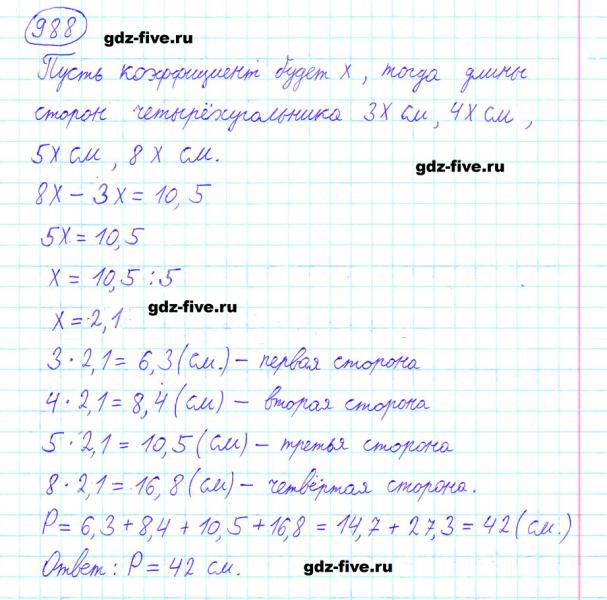 988
gdz-five.ru
Пусть коэффициент будет x, тогда длины
сторон четырёхугольника 3x см, 4x см,
5x см, 8x см.
gdz-five.ru
8x - 3x = 10,5
5x = 10,5
x = 10,5 : 5
gdz-five.ru
x = 2,1
3 · 2,1 = 6,3 (см.) - первая сторона
4 · 2,1 = 8,4 (см) - вторая сторона
5 · 2,1 = 10,5 (см) - третья сторона
8 · 2,1 = 16,8 (см) - четвёртая сторона.
P = 6,3 + 8,4 + 10,5 + 16,8 = 14,7 + 27,3 = 42 (см.)
Ответ: P = 42 см.
gdz-five.ru